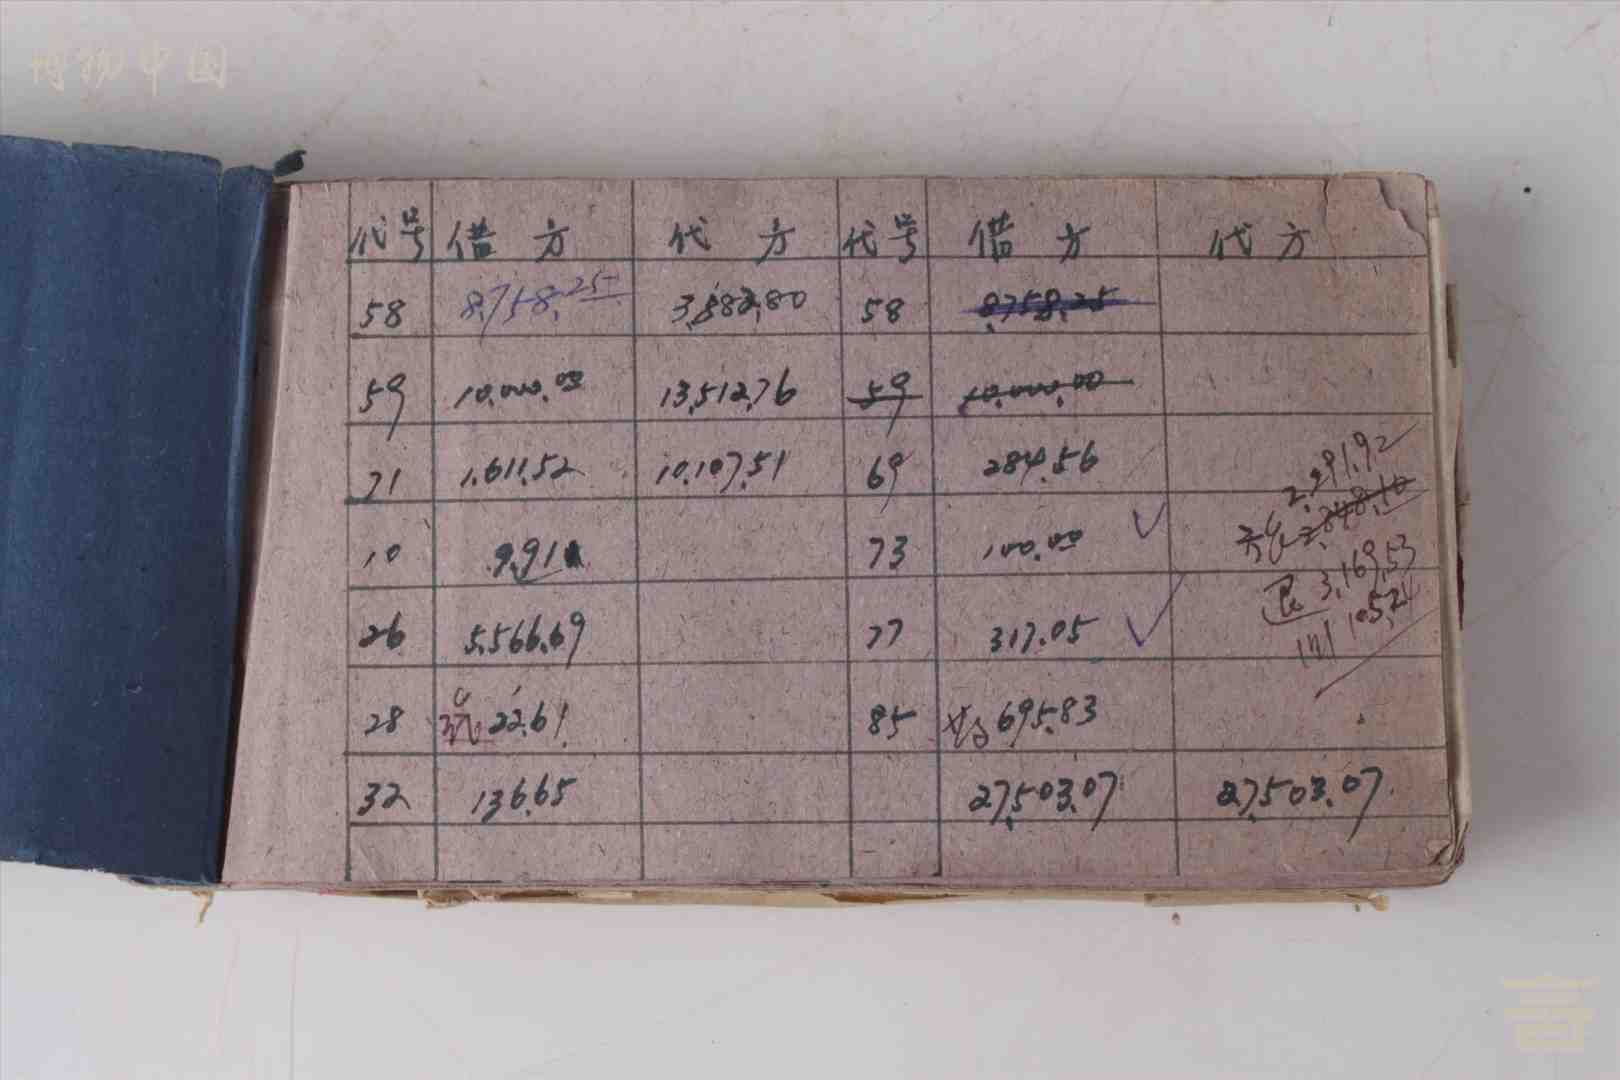 博物中国
代号 借方 代方 代号 借方 代方
58 8,758.25 3,882.80 58 8,758.25
59 10,000.00 13,512.76 59 10,000.00
71 1,611.52 10,107.51 69 284.56
2,291.92
10 9.91 73 100.00
2,848.10
3,169.53
26 5,566.69 77 317.05
105.24
28 22.61 85 695.83
32 136.65 27,503.07 27,503.07